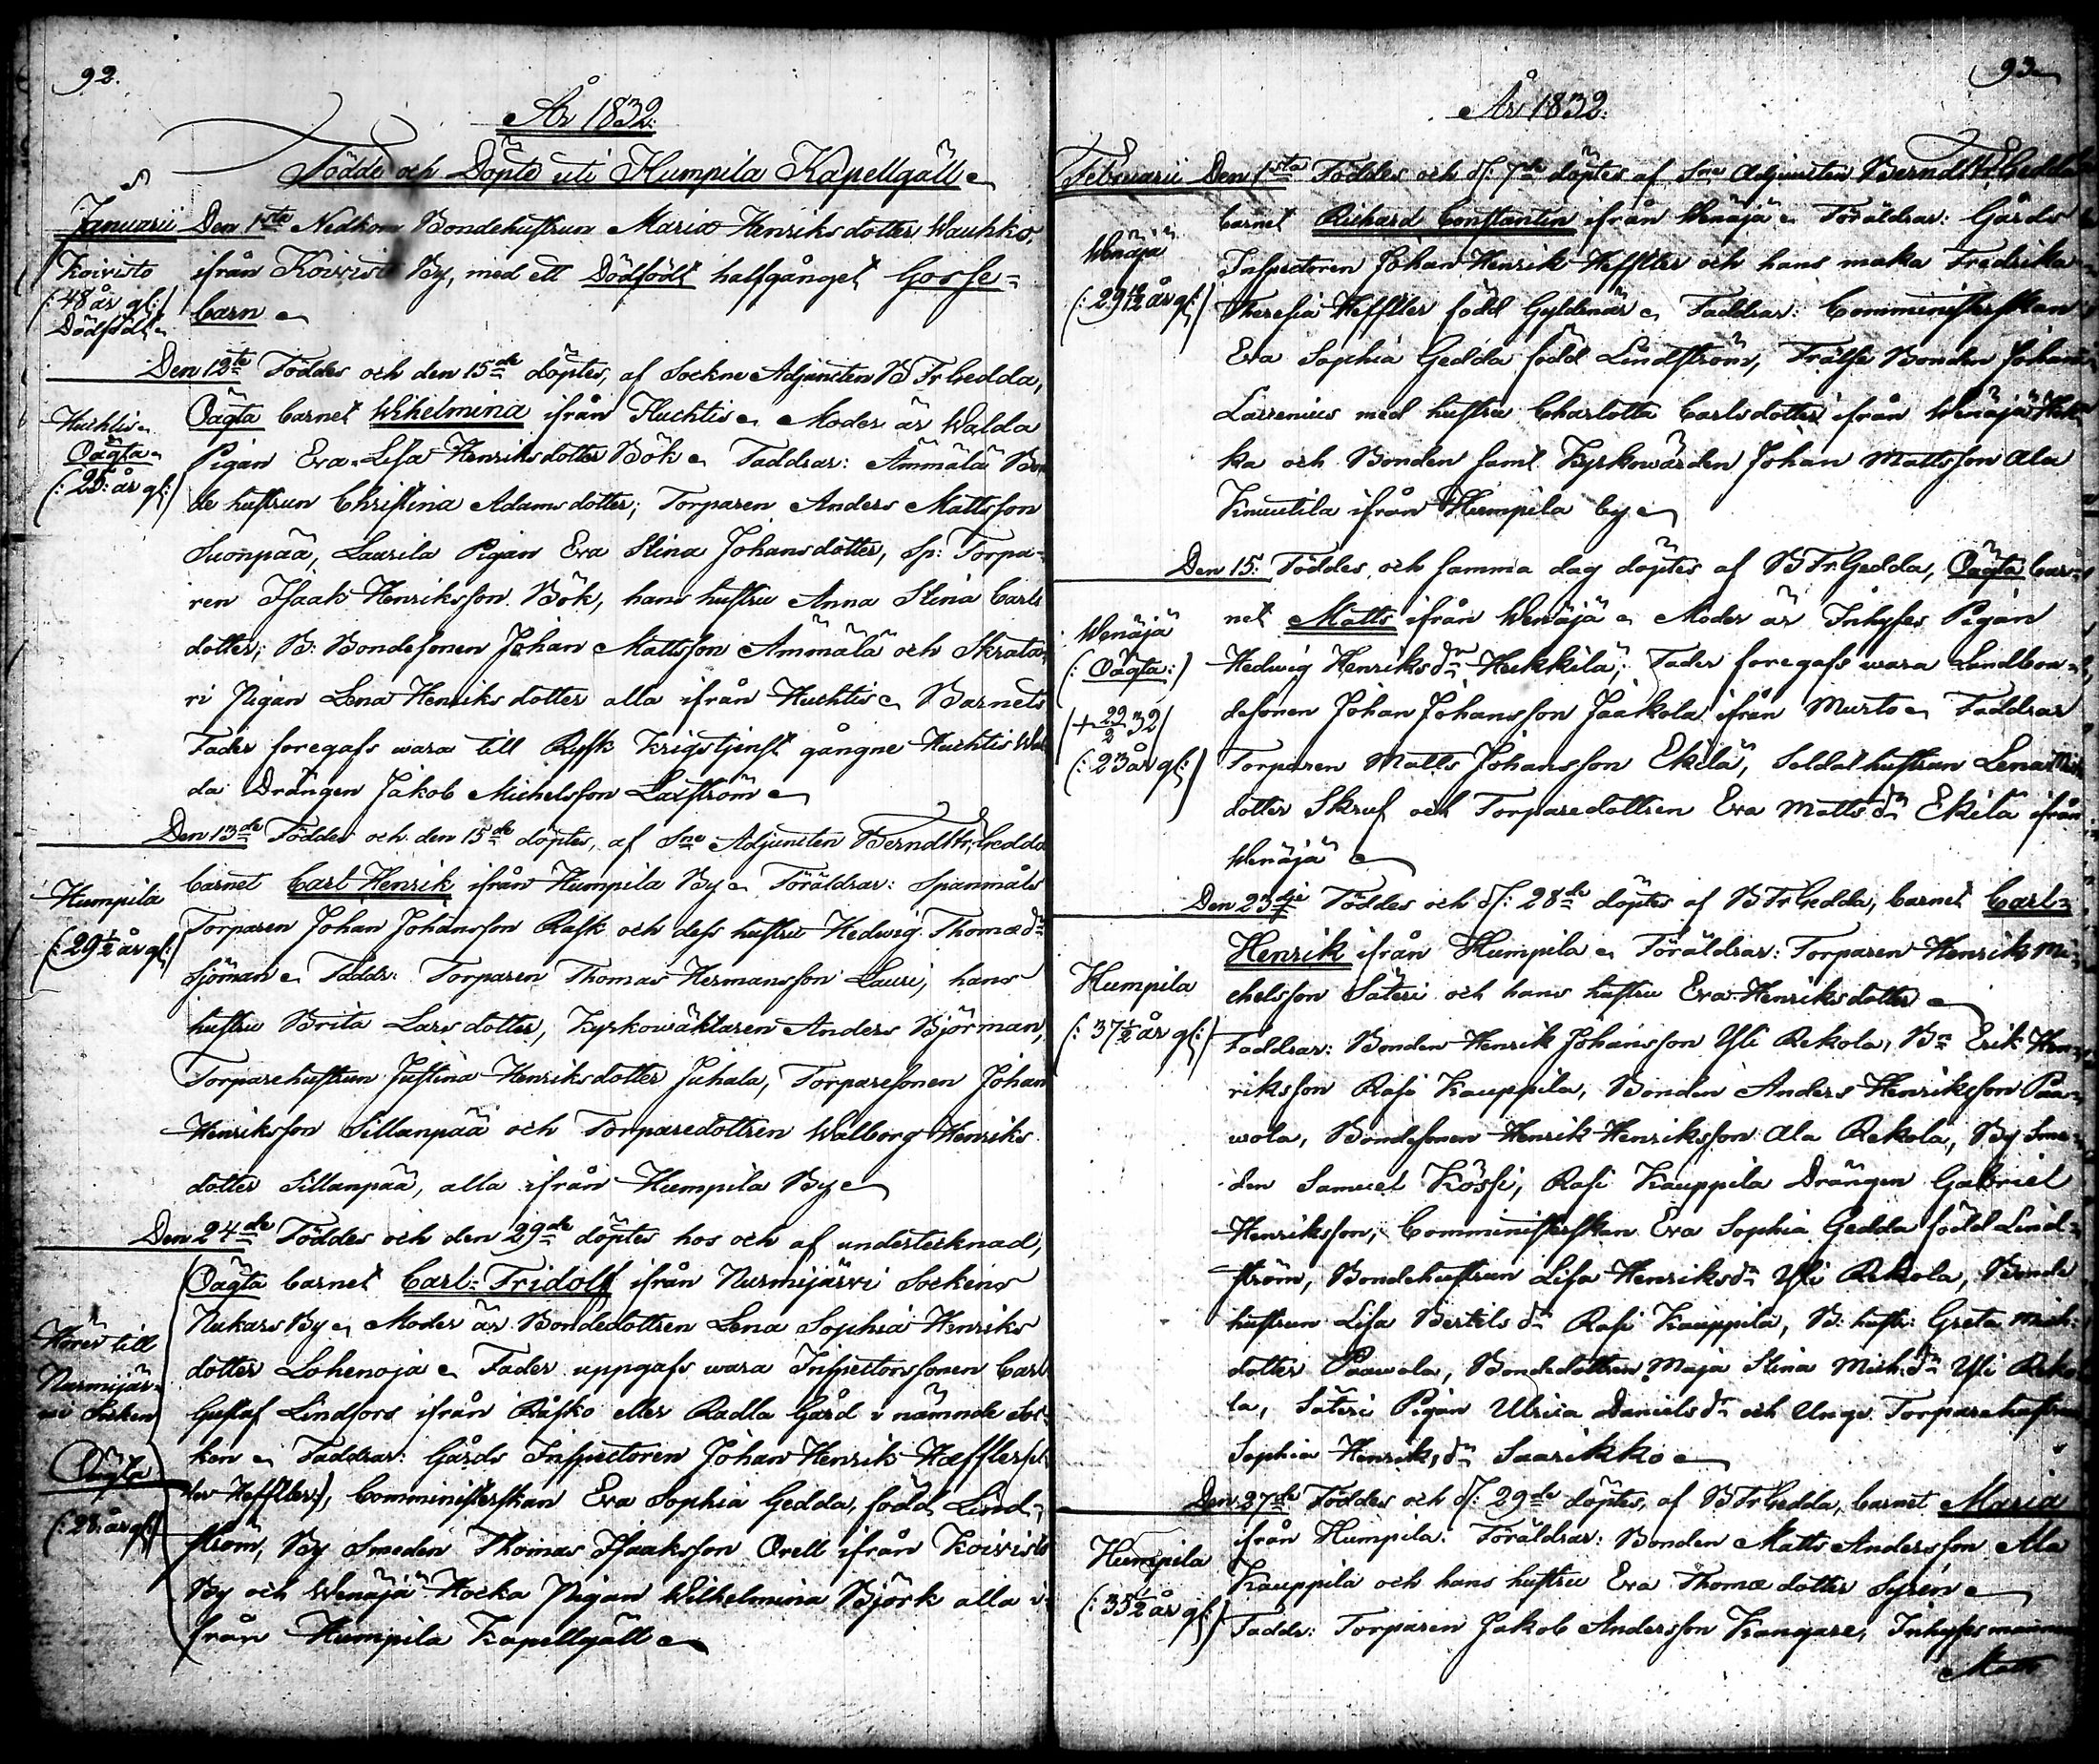 92.
År 1832.
Födde och Döpte uti Humpila Kapellgäll
Januarii Den 1sta Nedkom Bondehustrun Maria Henriksdotter Wauhko,
Koivisto
(: 48 år gl:)
Dödfödt
ifrån Koivisto By, med ett Dödfödt halfgånget Gosse-
barn
Den 12te Föddes och den 15de döptes, af Sockne Adjuncten B Fr Gedda,
Huchtis
Oägta
(: 25: år gl:)
Oägta barnet Wihelmina ifrån Huchtis Moder är Walda
Pigan Eva Lisa Henriksdotter Bök Faddrar: Ammälä Bon
de hustrun Christina Adamsdotter, Torparen Anders Mattsson
Suonpää, Laurila Pigan Eva Stina Johansdotter, Sp: Torpa-
ren Isaak Henriksson Bök, hans hustru Anna Stina Carls
dotter, B: Bondesonen Johan Mattsson Ammälä och Skräta-
ri Pigan Lena Henriksdotter alla ifrån Huchtis Barnets
Fader föregafs wara till Rysk Krigstjenst gångne Huchtis Wal
da Drängen Jakob Michelsson Laxström
Den 13de Föddes och den 15de döptes, af Sne Adjuncten Berndt Fr: Gedda
Humpila
(: 29 1/2 år gl:)
barnet Carl Henrik ifrån Humpila By Föräldrar: Spanmåls
Torparen Johan Johansson Rask och dess hustru Hedwig Thomædr
Sjöman Faddr: Torparen Thomas Hermansson Lauri, hans
hustru Brita Larsdotter, Kyrkowäktaren Anders Björman,
Torparehustrun Justina Henriksdotter Juhala, Torparesonen Johan
Henriksson Sillanpää och Torparedottren Walborg Henriks
dotter Sillanpää, alla ifrån Humpila By
Den 24de Föddes och den 29de döptes hos och af undertecknad,
Hörer till
Nurmijär-
wi Socken
Oägta
(: 28: år gl:)
Oägta barnet Carl Fridolf ifrån Nurmijärwi Sockens
Nukars By Moder är Bondedottren Lena Sophia Henriks
dotter Lohenoja Fader uppgafs wara Inspectorssonen Carl
Gustaf Lindfors ifrån Råsko eller Radla Gård i nämnde Soc-
ken Faddrar: Gårds Inspectoren Johan Henrik Hæffler
ler Heffler), Comministerskan Eva Sophia Gedda, född Lind-
ström, By Smeden Thomas Isaaksson Orell ifrån Koivisto
By och Wenäjä Hocka Pigan Wilhelmina Björk alla i
från Humpila Kapellgäll
93
År 1832.
Februarii Den 1sta Föddes och d: 7de döptes af Sne Adjuncten Berndt Fr: Gedda
Wenäjä
barnet Richard Constantin ifrån Wenäjä Föräldrar: Gårds
Inspectoren Johan Henrik Heffler och hans maka Fredrika
Theresia Heffler född Gyldenär Faddrar: Comministerskan
Eva Sophia Gedda född Lindström, Frälse Bonden Johan
Laurenius med hustru Charlotta Carlsdotter ifrån Wenäjä Hoc
ka och Bonden samt Kyrkowärden Johan Mattsson Ala
Knuutila ifrån Humpila by
Den 15: Föddes och samma dag döptes af B Fr Gedda, Oägta bar-
Wenäjä
(: Oägta:)
+ 29/2 32
(: 23 år gl:)
net Matts ifrån Wenäjä Moder är Inhyses Pigan
Hedwig Henriksdr Heikkilä, Fader föregafs wara Landbon-
desonen Johan Johansson Jaakola ifrån Murto Faddrar
Torparen Matts Johansson Ekilä, Soldathustrun Lena
dotter Skruf och Torparedottren Eva Mattsdr Ekilä ifrån
Wenäjä
Den 23dje Föddes och d: 28de döptes af B Fr Gedda, barnet Carl-
Humpila
(: 37 1/2 år gl:)
Henrik ifrån Humpila Föräldrar: Torparen Henrik Mi-
chelsson Säteri och hans hustru Eva Henriksdotter
Faddrar: Bonden Henrik Johansson Yli Rekola, Bn Erik Hen-
riksson Rasi Kauppila, Bonden Anders Henriksson Paa-
wola, Bondesonen Henrik Henriksson Ala Rekola, By Sme-
den Samuel Kössi, Rasi Kauppila Drängen Gabriel
Henriksson, Comministerskan Eva Sophia Gedda född Lind-
ström, Bondehustrun Lisa Henriksdr Yli Rekola, Bonde
hustrun Lisa Bertilsdr Rasi Kauppila, B: hustr: Greta Mich:
dotter Paawola, Bondedottren Maja Stina Mich:dr Yli Reko
la, Säteri Pigan Ulrica Danielsdr och Unge Torparehustrun
Sophia Henriksdr Saarikko
Den 27de Föddes och d: 29de döptes, af B Fr Gedda, barnet Maria
Humpila
(: 35 1/2 år gl:)
ifrån Humpila. Föräldrar: Bonden Matts Andersson Ala
Kauppila och hans hustru Eva Thomædotter Syrén
Faddr: Torparen Jakob Andersson Kangare, Inhysesmannen
Matts